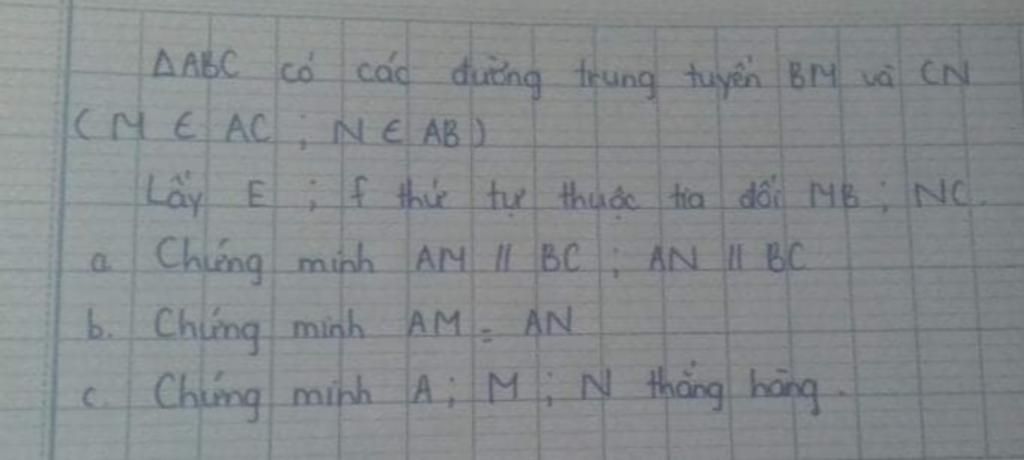 ΔABC có các đường trung tuyến BM và CN
(M ∈ AC ; N ∈ AB)
Lấy E ; f thứ tự thuộc tia đối MB ; NC.
a Chứng minh AM // BC ; AN // BC
b. Chứng minh AM = AN
c. Chứng minh A ; M ; N thẳng hàng.